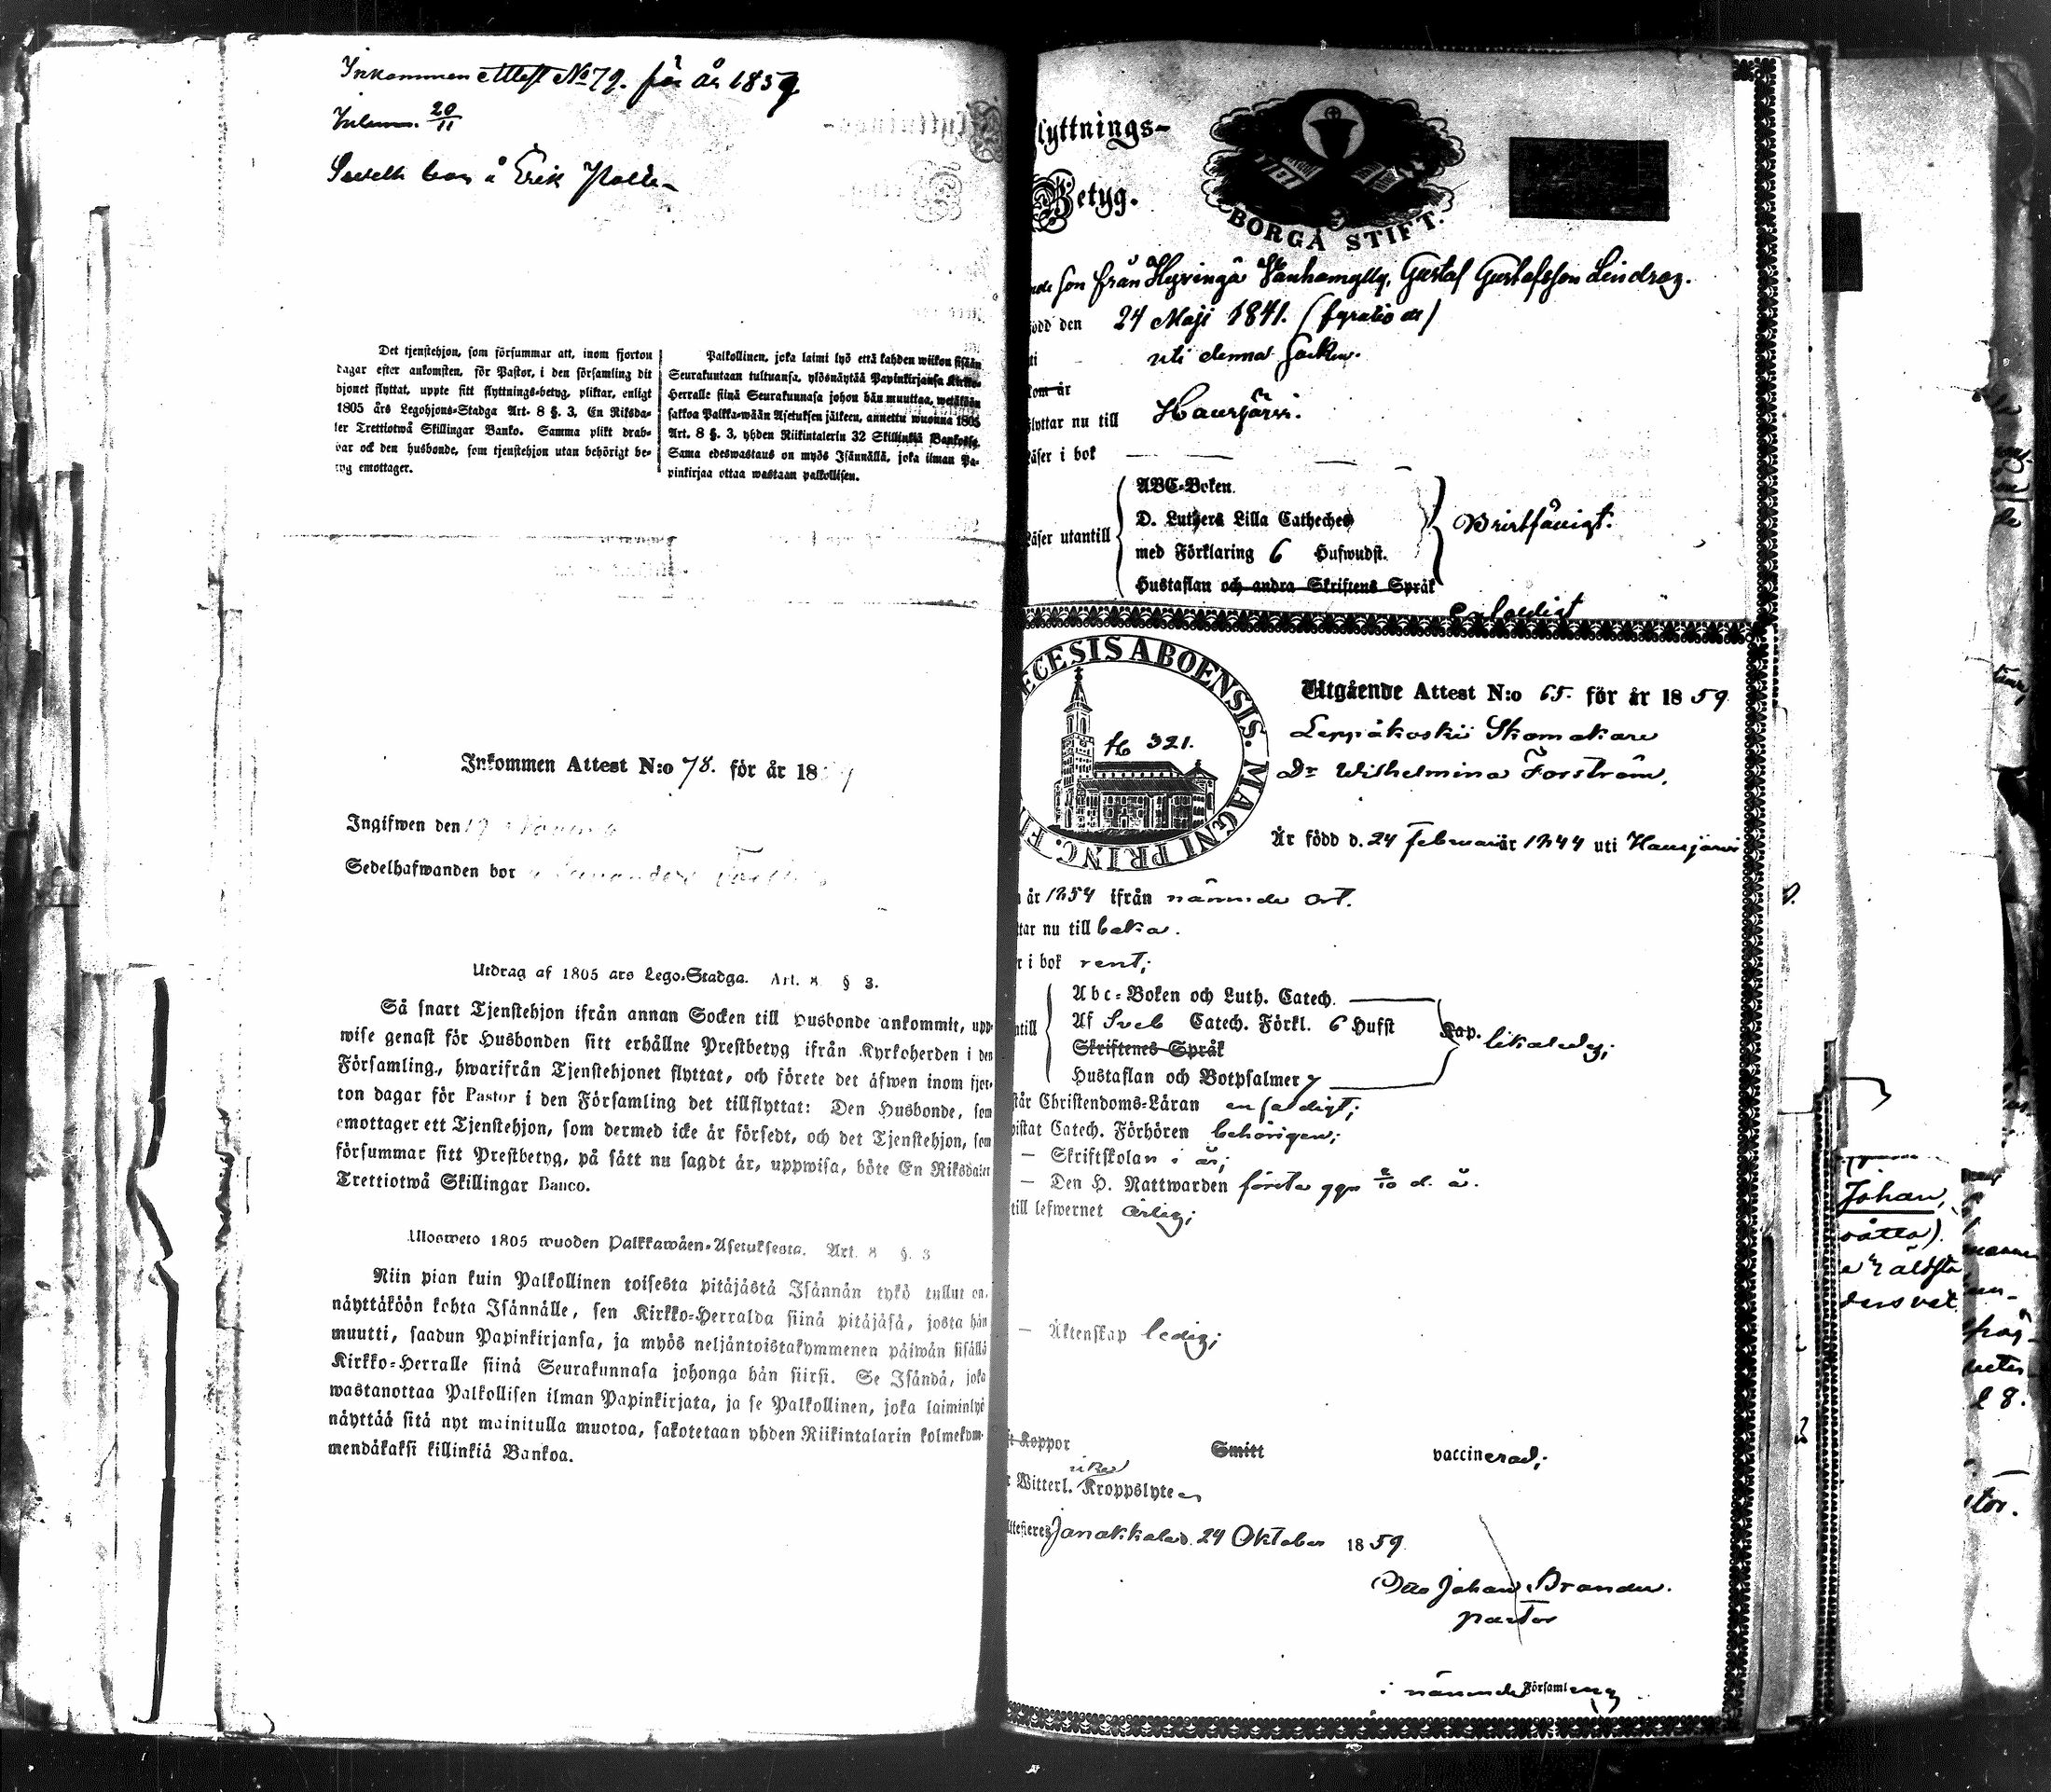 Inkommen Attest No 79. för år 1859
Inlemn. 20/11
Erik
Det tjenstehjon, som försummar att, inom fjorton
dagar efter ankomsten, för Pastor, i den församling dit
hjonet flyttat, uppte sitt flyttnings-betyg, pliktar, enligt
1805 års Legohjons-Stadga Art. 8 §. 3, En Riksda-
ler Trettiotwå Skillingar Banko. Samma plikt drab-
bar ock den husbonde, som tjenstehjon utan behörigt be-
tyg emottager.
Palkollinen, joka laimi lyö että kahden wiikon sisään
Seurakuntaan tultuansa, ylösnäytää Papinkirjansa Kirkko-
Herralle siinä Seurakunnasa johon hän muuttaa, wetäköön
sakkoa Palkka-wään Asetuksen jälkeen, annettu wuonna 1805
Art. 8 §. 3, yhden Riikintalerin 32 Skillinkiä Bankossa.
Sama edeswastaus on myös Isännällä, joka ilman Pa-
pinkirjaa ottaa wastaan palkollisen.
Inkommen Attest N:o 78. för år 1859
Ingifwen den 19 Novemb
Sedelhafwanden bor
Utdrag af 1805 års Lego-Stadga. Art. 8 § 3.
Så snart Tjenstehjon ifrån annan Socken till Husbonde ankommit, upp-
wise genast för Husbonden sitt erhållne Prestbetyg ifrån Kyrkoherden i den
Församling, hwarifrån Tjenstehjonet flyttat, och förete det äfwen inom fjor-
ton dagar för Pastor i den Församling det tillflyttat: Den Husbonde, som
emottager ett Tjenstehjon, som dermed icke är försedt, och det Tjenstehjon, som
försummar sitt Prestbetyg, på sätt nu sagdt är, uppwisa, böte En Riksdaler
Trettiotwå Skillingar Banco.
Ulosweto 1805 wuoden Palkkawäen-Asetuksesta. Art. 8 §. 3
Niin pian kuin Palkollinen toisesta pitäjästä Isännän tykö tullut on,
näyttäköön kohta Isännälle, sen Kirkko-Herralda siinä pitäjäsä, josta hän
muutti, saadun Papinkirjansa, ja myös neljäntoistakymmenen päiwän sisällä
Kirkko-Herralle siinä Seurakunnasa johonga hän siirsi. Se Isändä, joka
wastanottaa Palkollisen ilman Papinkirjata, ja se Palkollinen, joka laiminlyö
näyttää sitä nyt mainitulla muotoa, sakotetaan yhden Riikintalarin kolmekym-
mendäkaksi killinkiä Bankoa.
lyttnings-
Betyg.
BORGÅ STIFT.
son från Hyvingä Vanhamylly, Gustaf Gustafsson Lindroos.
född den 24 Maji 1841.
uti denna Socken.
Kom år
flyttar nu till Hausjärvi.
Läser i bok
Läser utantill
ABC-Boken.
D. Luthers Lilla Catheches
med Förklaring 6 Hufwudst.
Hustaflan och andra Skriftens Språk
enfaldigt
ECESIS ABOENSIS. MAGNI PRINC. FI
321.
Utgående Attest N:o 65. för år 1859
Leppäkoski Skomakare
Dr Wilhelmina Forström,
Är född d. 24 Februari är 1844 uti Hausjärvi
år 1854 ifrån nämnde ort.
tar nu till baka.
r i bok rent;
ntill
Abc-Boken och Luth. Catech.
Af Sveb Catech. Förkl. 6 Hufst
Skriftenes Språk
Hustaflan och Botpsalmer 7
Kap.
står Christendoms-Läran enfaldigt;
bistat Catech. Förhören behörigen;
— Skriftskolan i år;
— Den H. Nattwarden första ggn 2/10 d. å.
till lefwernet ärlig;
— Äktenskap ledig;
ft Koppor Smitt vaccinerad;
r Witterl. Kroppslyte
Attesteres Janakkala d. 24 Oktober 1859.
Otto Johan Brander.
pastor
i nämnde Församling
Johan,